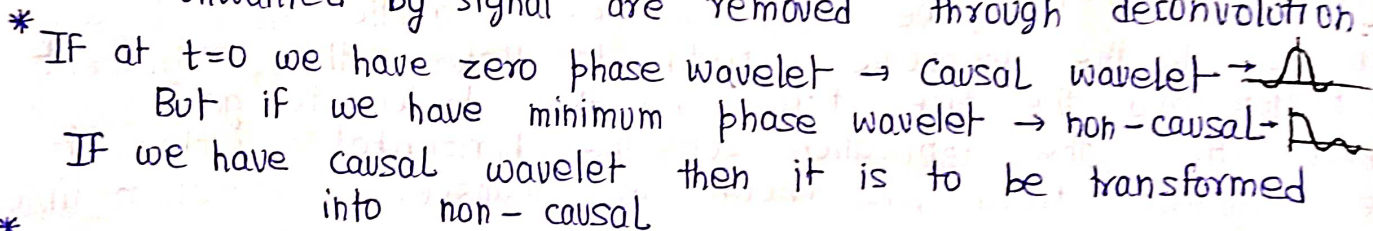 by signal are removed through deconvolution.
* IF at t=0 we have zero phase wavelet → causal wavelet →
But if we have minimum phase wavelet → non-causal-
IF we have causal wavelet then it is to be transformed
into non - causal
*